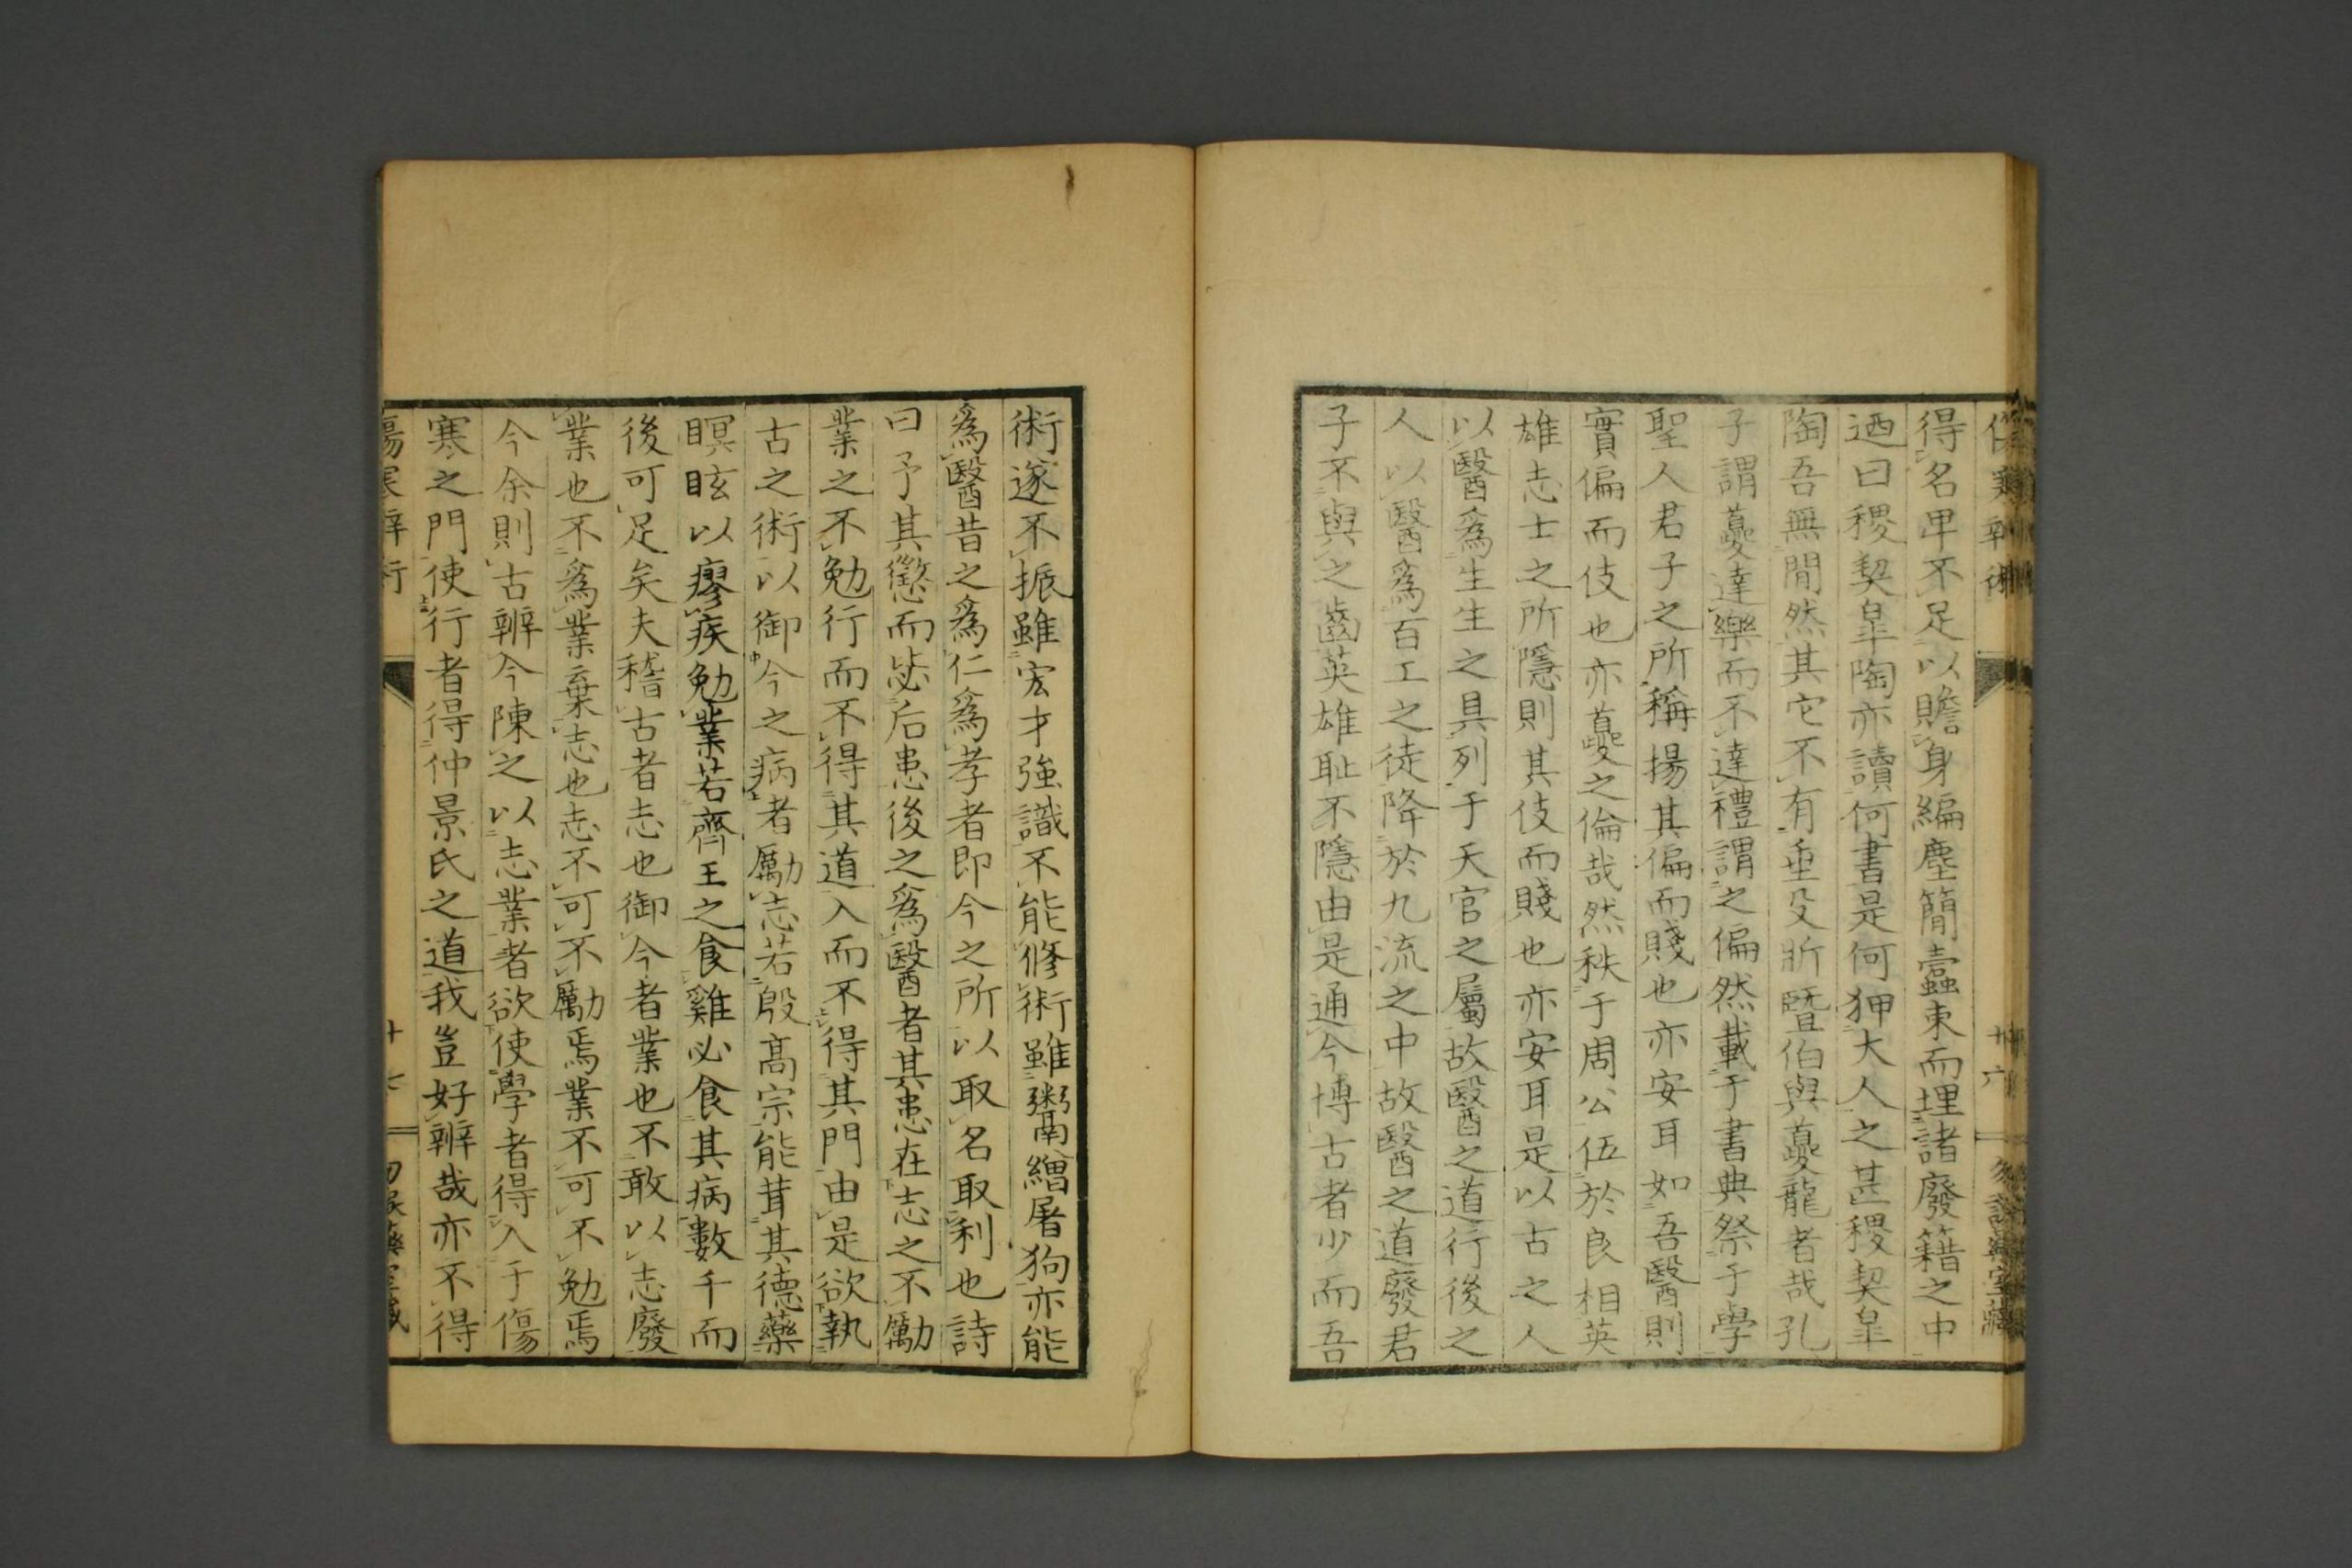 得名卑不足以贍身編塵簡蠹束而埋諸廢籍之中
迺曰稷契皐陶亦讀何書是何狎大人之甚稷契皐
陶吾無間然其它不有垂殳斨暨伯與夔龍者哉孔
子謂夔達樂而不達禮謂之偏然載于書典祭于學
聖人君子之所稱揚其偏而賤也亦安耳如吾醫則
實偏而伎也亦夔之倫哉然秩于周公伍於良相英
雄志士之所隱則其伎而賤也亦安耳是以古之人
以醫爲生生之具列于天官之屬故醫之道行後之
人以醫爲百工之徒降於九流之中故醫之道廢君
子不與之齒英雄耻不隱由是通今博古者少而吾
術遂不振雖宏才強識不能修術雖鬻繒屠狗亦能
爲醫昔之爲仁爲孝者即今之所以取名取利也詩
曰予其懲而毖后患後之爲醫者其患在志之不勵
業之不勉行而不得其道入而不得其門由是欲執
古之術以御今之病者勵志若殷高宗能茸其德藥
瞑眩以瘳疾勉業若齊王之食雞必食其病數千而
後可足矣夫稽古者志也御今者業也不敢以志廢
業也不爲業棄志也志不可不勵焉業不可不勉焉
今余則古辨今陳之以志業者欲使學者得入于傷
寒之門使行者得仲景氏之道我豈好辨哉亦不得
傷寒辨術
十七